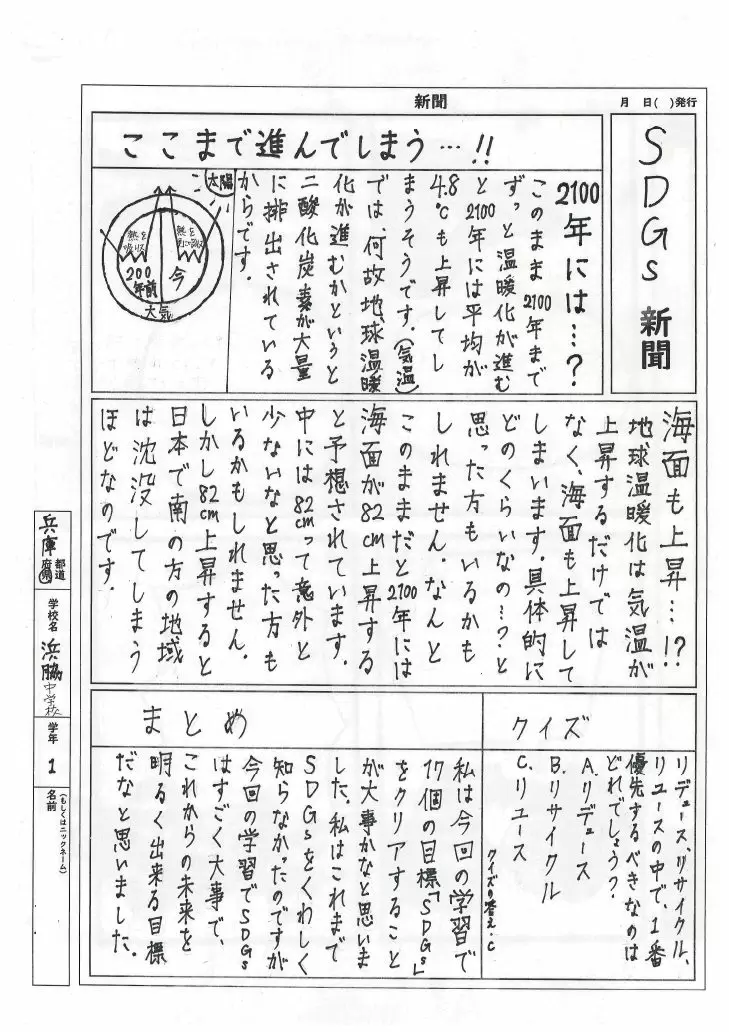 新聞
月 日( )発行
SDGs新聞
ここまで進んでしまう…!!
2100年には…?
このまま2100年まで
ずっと温暖化が進む
と2100年には平均が
4.8℃も上昇してし
まうそうです。(気温)
では、何故地球温暖
化が進むかというと
二酸化炭素が大量
に排出されている
からです。
太陽
熱を
吸収
熱を
200
年前
今
大気
海面も上昇…!?
地球温暖化は気温が
上昇するだけでは
なく、海面も上昇して
しまいます。具体的に
どのくらいなの…?と
思った方もいるかも
しれません。なんと
このままだと2100年には
海面が82cm上昇する
と予想されています。
中には82cmって意外と
少ないなと思った方も
いるかもしれません。
しかし82cm上昇すると
日本で南の方の地域
は沈没してしまう
ほどなのです。
クイズ
リデュース、リサイクル、
リユースの中で、1番
優先するべきなのは
どれでしょう?
A.リデュース
B.リサイクル
C.リユース
クイズの答え.C
まとめ
私は今回の学習で
17個の目標「SDGs」
をクリアすること
が大事かなと思いま
した。私はこれまで
SDGsをくわしく
知らなかったのですが
今回の学習でSDGs
はすごく大事で、
これからの未来を
明るく出来る目標
だなと思いました。
兵庫
都道
府県
学校名
浜脇中学校
学年
1
名前
(もしくはニックネーム)